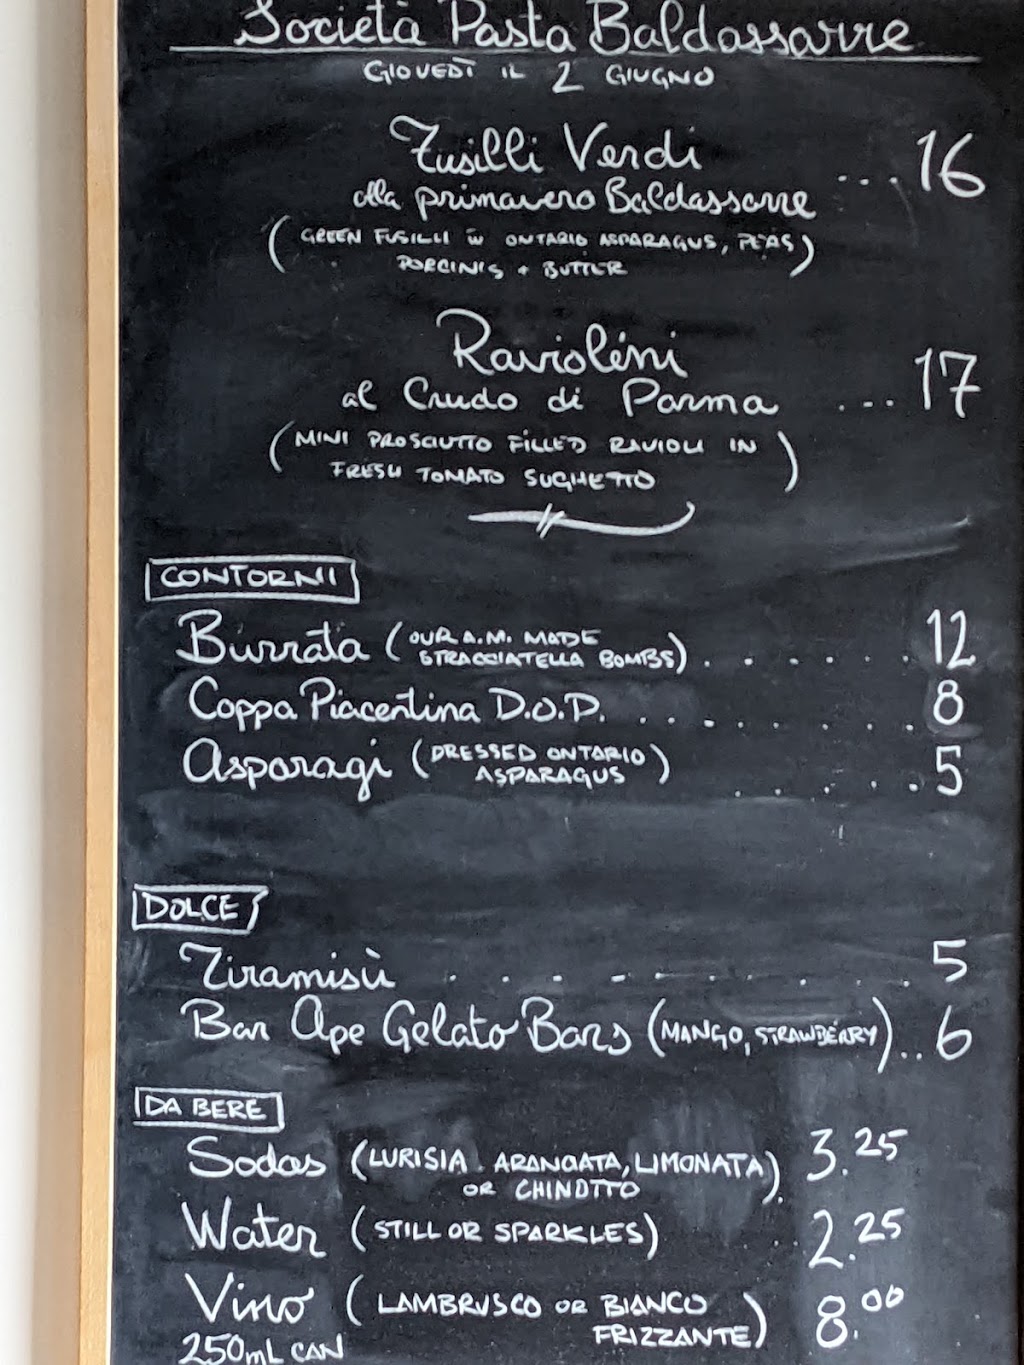 Società Pasta Baldassarre
GIOVEDÌ IL 2 GIUGNO
Fusilli Verdi
alla primavera Baldassarre ... 16
(GREEN FUSILLI W ONTARIO ASPARAGUS, PEAS
PORCINIS + BUTTER)
Raviolini
al Crudo di Parma ... 17
(MINI PROSCIUTTO FILLED RAVIOLI IN
FRESH TOMATO SUGHETTO)
CONTORNII
Burrata (OUR A.M. MADE
STRACCIATELLA BOMBS) . . . . . . . 12
Coppa Piacentina D.O.P. . . . . . . . . 8
Asparagi (DRESSED ONTARIO
ASPARAGUS) . . . . . 5
DOLCE
Tiramisù . . . . . . . . . 5
Bar Ape Gelato Bars (MANGO, STRAWBERRY) .. 6
DA BERE
Sodas (LURISIA . ARANCIATA, LIMONATA 3.25
OR CHINOTTO)
Water (STILL OR SPARKLES) 2.25
Vino (LAMBRUSCO OR BIANCO
FRIZZANTE) 8.00
250mL CAN